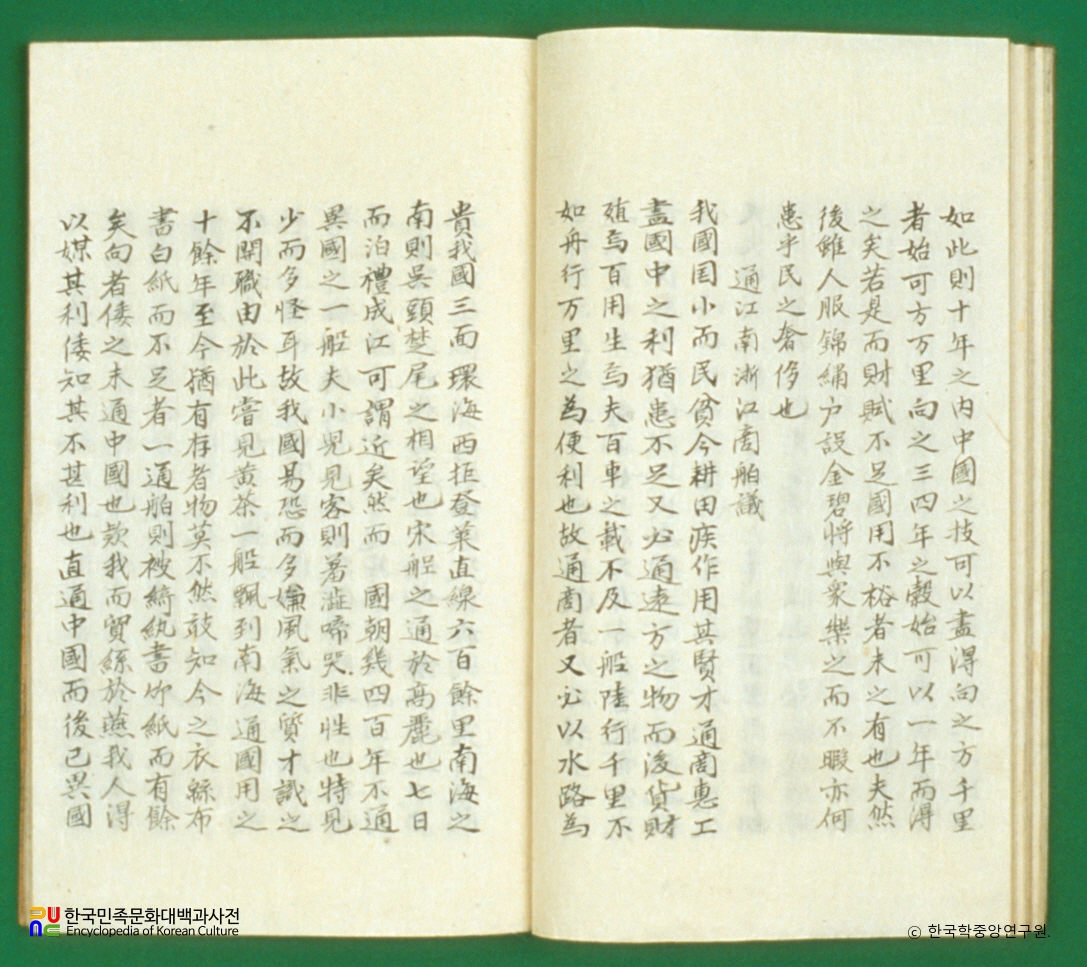 如此則十年之内中國之技可以盡得向之方千里
者始可方万里向之三四年之穀始可以一年而得
之矣若是而財賦不足國用不裕者未之有也夫然
後雖人服錦綃户設金碧將與衆樂之而不暇亦何
患乎民之奢侈也
通江南浙江商舶議
我國囯小而民貧今耕田疾作用其賢才通商惠工
盡國中之利猶患不足又必通遠方之物而後貨財
殖焉百用生焉夫百車之載不及一船陸行千里不
如舟行万里之為便利也故通商者又必以水路為
貴我國三面環海西拒登萊直線六百餘里南海之
南則吳頭楚尾之相望也宋船之通於高麗也七日
而泊禮成江可謂近矣然而 國朝幾四百年不通
異國之一船夫小児見客則羞澁啼哭非性也特見
少而多怪耳故我國易恐而多嫌風氣之貿才識之
不開職由於此嘗見黄茶一船飄到南海通國用之
十餘年至今猶有存者物莫不然故知今之衣綿布
書白紙而不足者一通舶則被綺紈書竹紙而有餘
矣向者倭之未通中國也欵我而貿絲於燕我人得
以媒其利倭知其不甚利也直通中國而後已異國
한국민족문화대백과사전
Encyclopedia of Korean Culture
© 한국학중앙연구원.